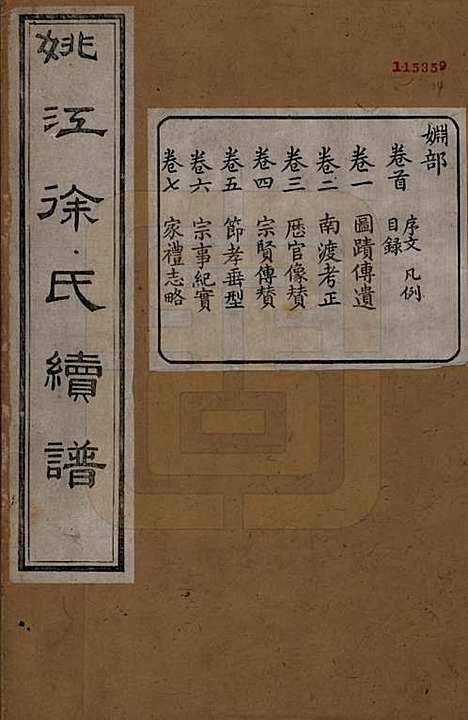 姚江徐氏續譜
115359
婣部
卷首 序文 凡例
目録
卷一 圖蹟傳遺
卷二 南渡考正
卷三 歷官像贊
卷四 宗賢傳贊
卷五 節孝垂型
卷六 宗事紀實
卷七 家禮志略